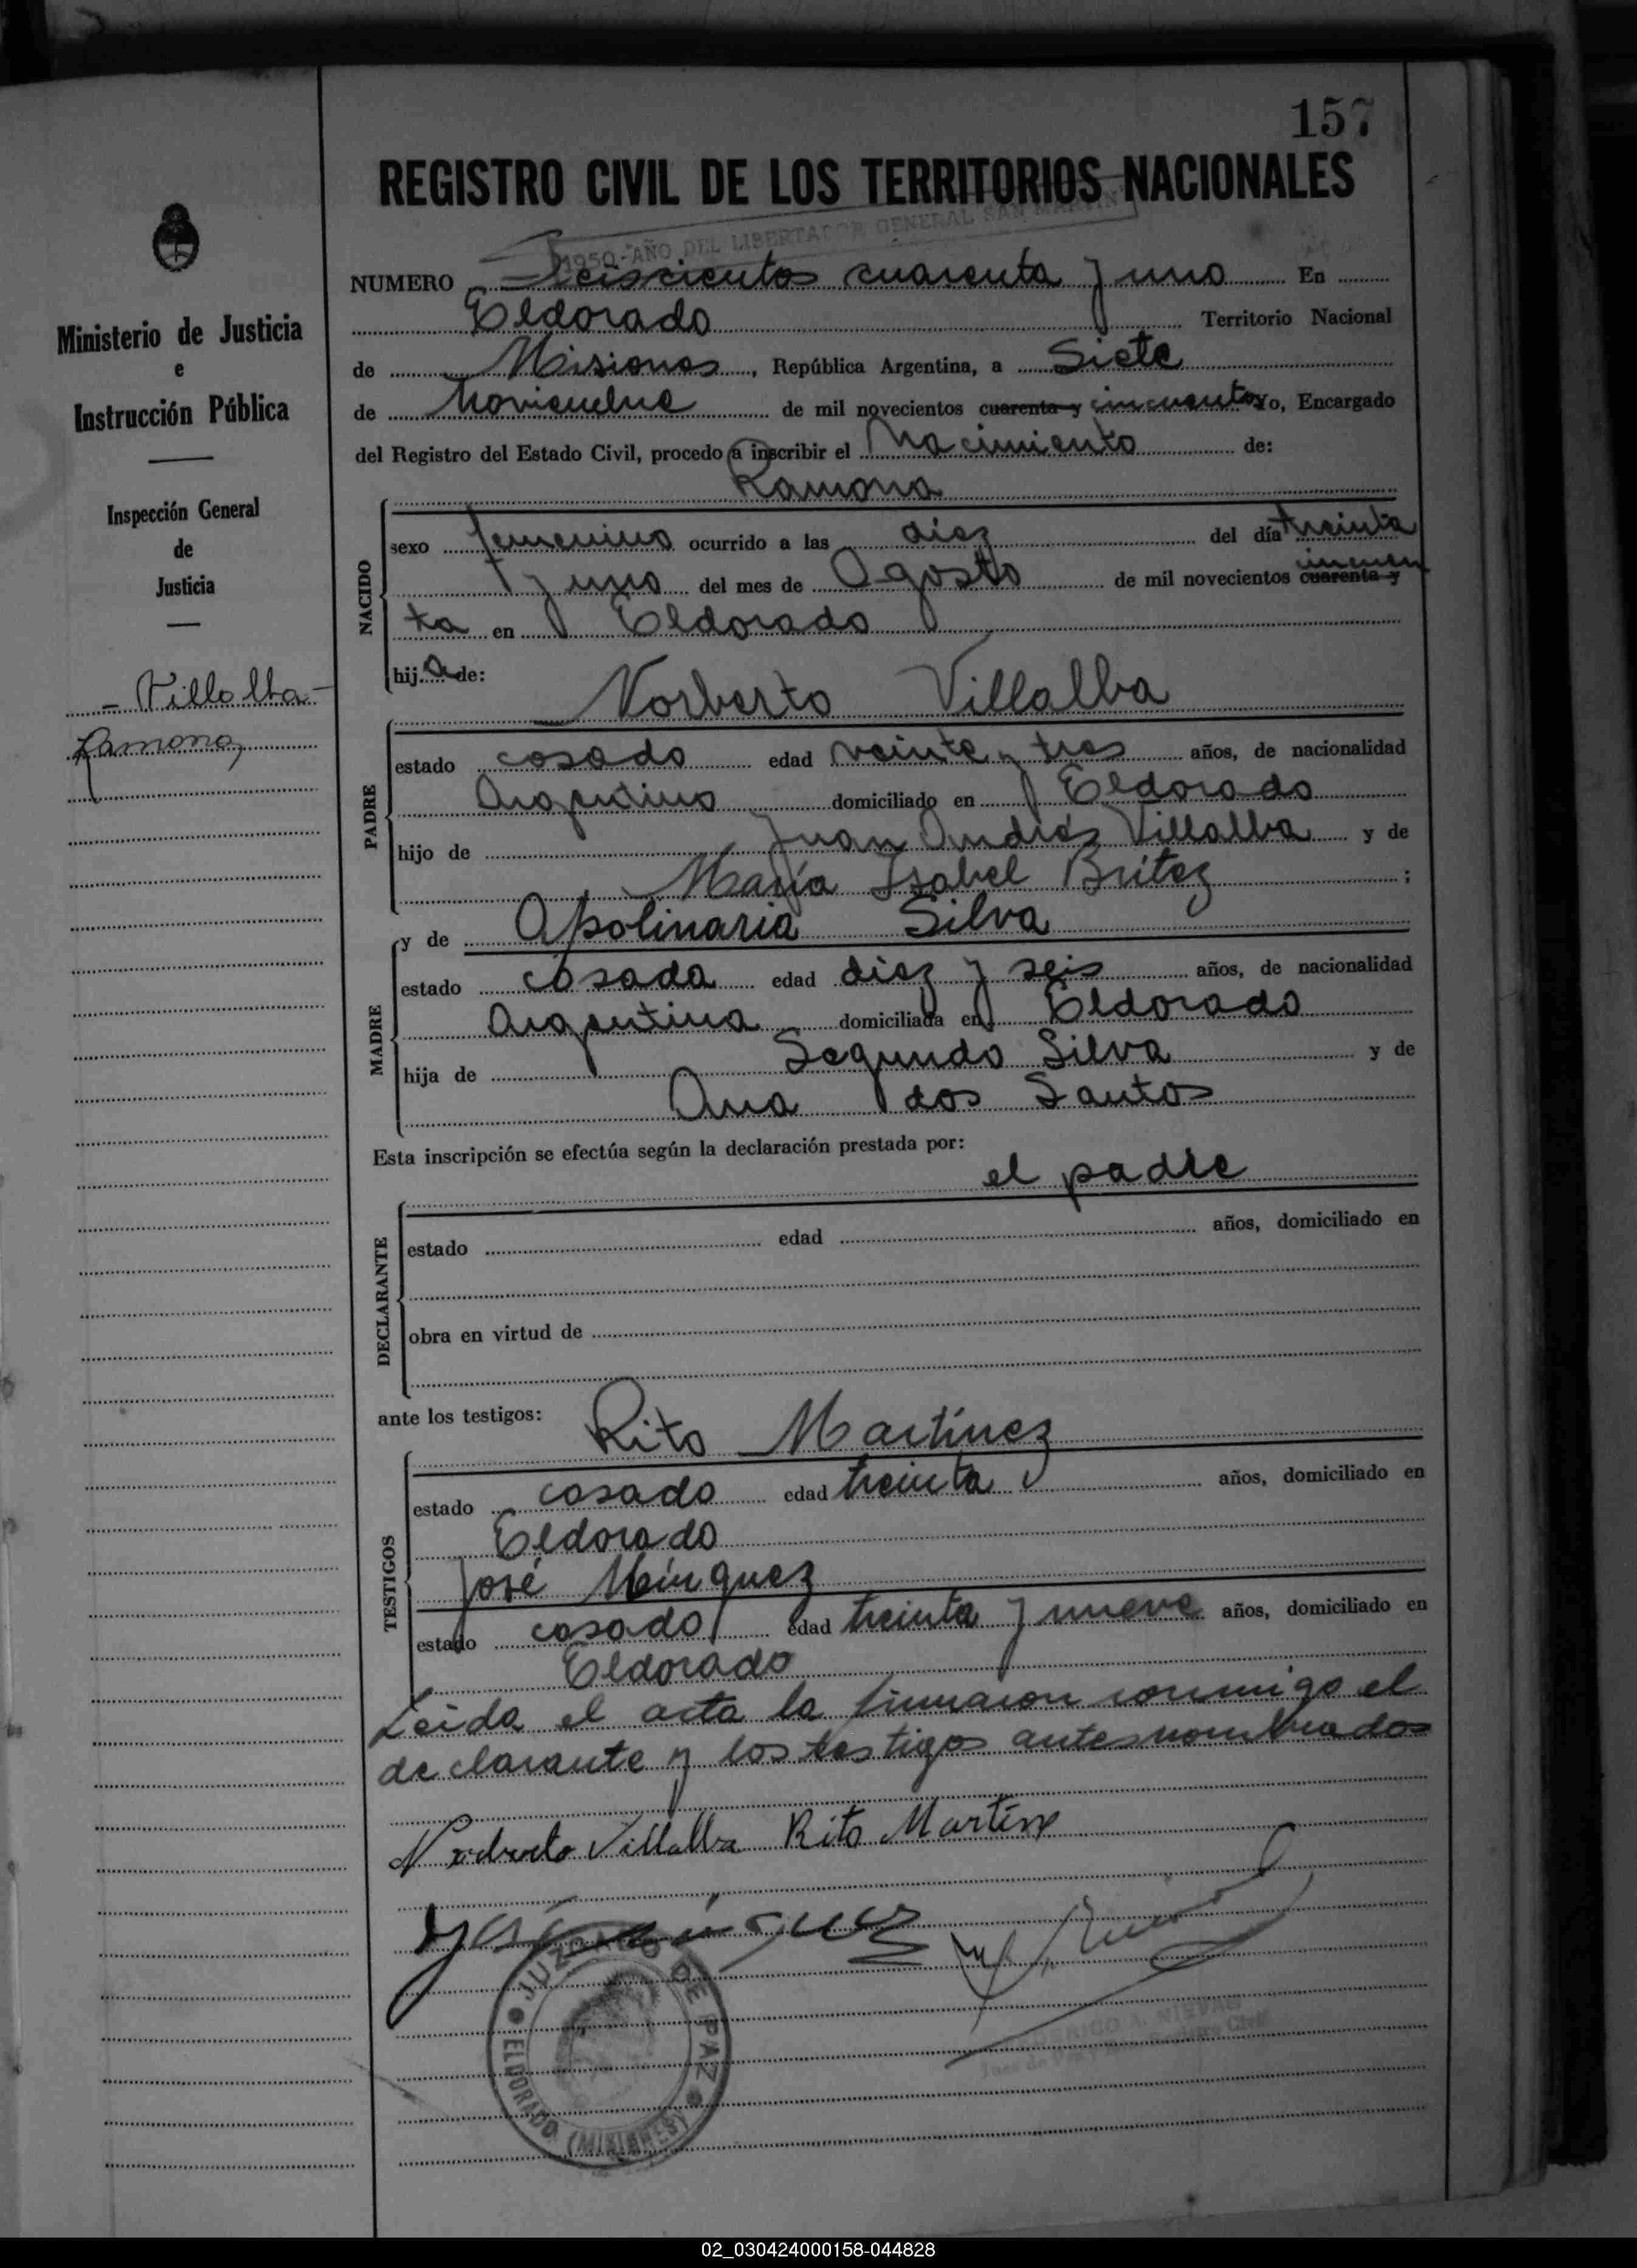 157
REGISTRO CIVIL DE LOS TERRITORIOS NACIONALES
1950 - AÑO DEL LIBERTADOR GENERAL SAN MARTIN
NUMERO Seiscientos cuarenta y uno En
Eldorado Territorio Nacional
de Misiones, República Argentina, a Siete
de Noviembre de mil novecientos cuarenta y cincuenta Yo, Encargado
del Registro del Estado Civil, procedo a inscribir el Nacimiento de:
Ramona
NACIDO
sexo femenino ocurrido a las diez del día treinta
y uno del mes de Agosto de mil novecientos cuarenta y cincuen
ta en Eldorado
hija de:
Norberto Villalba
PADRE
estado casado edad veinte y tres años, de nacionalidad
Argentino domiciliado en Eldorado
hijo de Juan Andrés Villalba y de
María Isabel Britez ;
MADRE
y de Apolinaria Silva
estado casada edad diez y seis años, de nacionalidad
Argentina domiciliada en Eldorado
hija de Segundo Silva y de
Ana dos Santos
Esta inscripción se efectúa según la declaración prestada por:
el padre
DECLARANTE
estado edad años, domiciliado en
obra en virtud de
ante los testigos:
Rito Martínez
TESTIGOS
estado casado edad treinta años, domiciliado en
Eldorado
José Mínguez
estado casado edad treinta y nueve años, domiciliado en
Eldorado
Leída el acta la firmaron conmigo el
declarante y los testigos antesnombrados
Norberto Villalba Rito Martine
JUZGADO DE PAZ
ELDORADO (MISIONES)
FEDERICO A. NIEVAS
Ministerio de Justicia
e
Instrucción Pública
Inspección General
de
Justicia
- Villalba -
Ramona
02_030424000158-044828